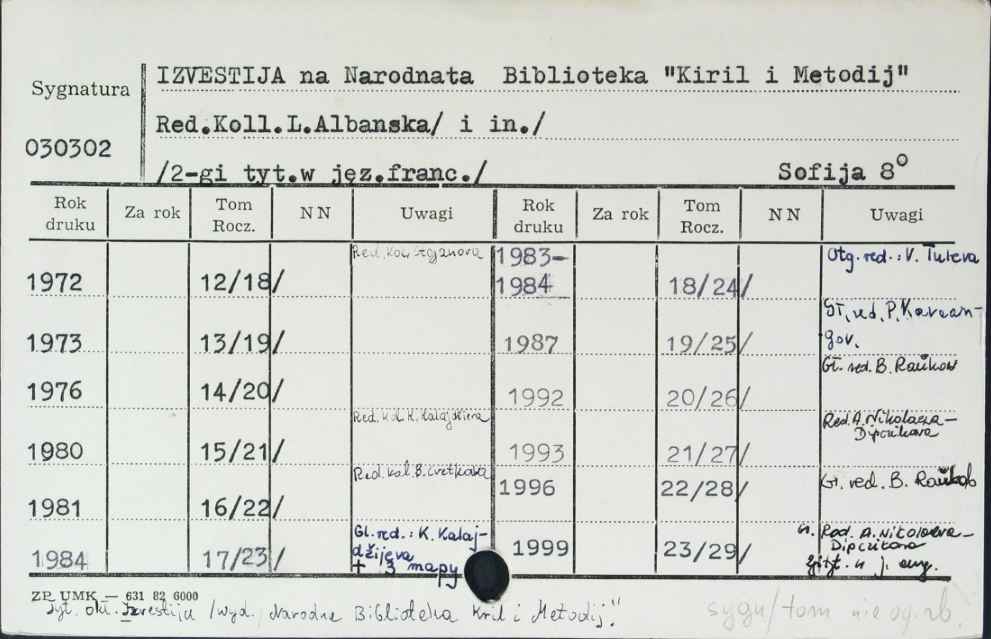 IZVESTIJA na Narodnata Biblioteka "Kiril i Metodij"
Sygnatura
Red.Koll.L.Albanska/ i in./
030302
/2-gi tyt.w jęz.franc./ Sofija 8°
Rok druku Za rok Tom Rocz. NN Uwagi Rok druku Za rok Tom Rocz. NN Uwagi
1972 12/18/ Red. 1983-1984 18/24/ Otg. red.: V. Tuleva
1973 13/19/ 1987 19/25/ Gł. red. P. Karaangov.
1976 14/20/ 1992 20/26/ Gł. red. B. Rajkow
1980 15/21/ Red. kol. K. 1993 21/27/ Red. A. Nikolaeva-
1981 16/22/ Red. kol. B. Cvetkova 1996 22/28/ Gł. red. B.
1984 17/23/ Gl. red.: K. Kalajdžijeva + 3 mapy 1999 23/29/ Red. A. Nikolaeva-
ZP UMK — 631 82 6000
Tyt. okł. Izvestija /wyd. Narodna Biblioteka Kiril i Metodij."
sygn/tom nie